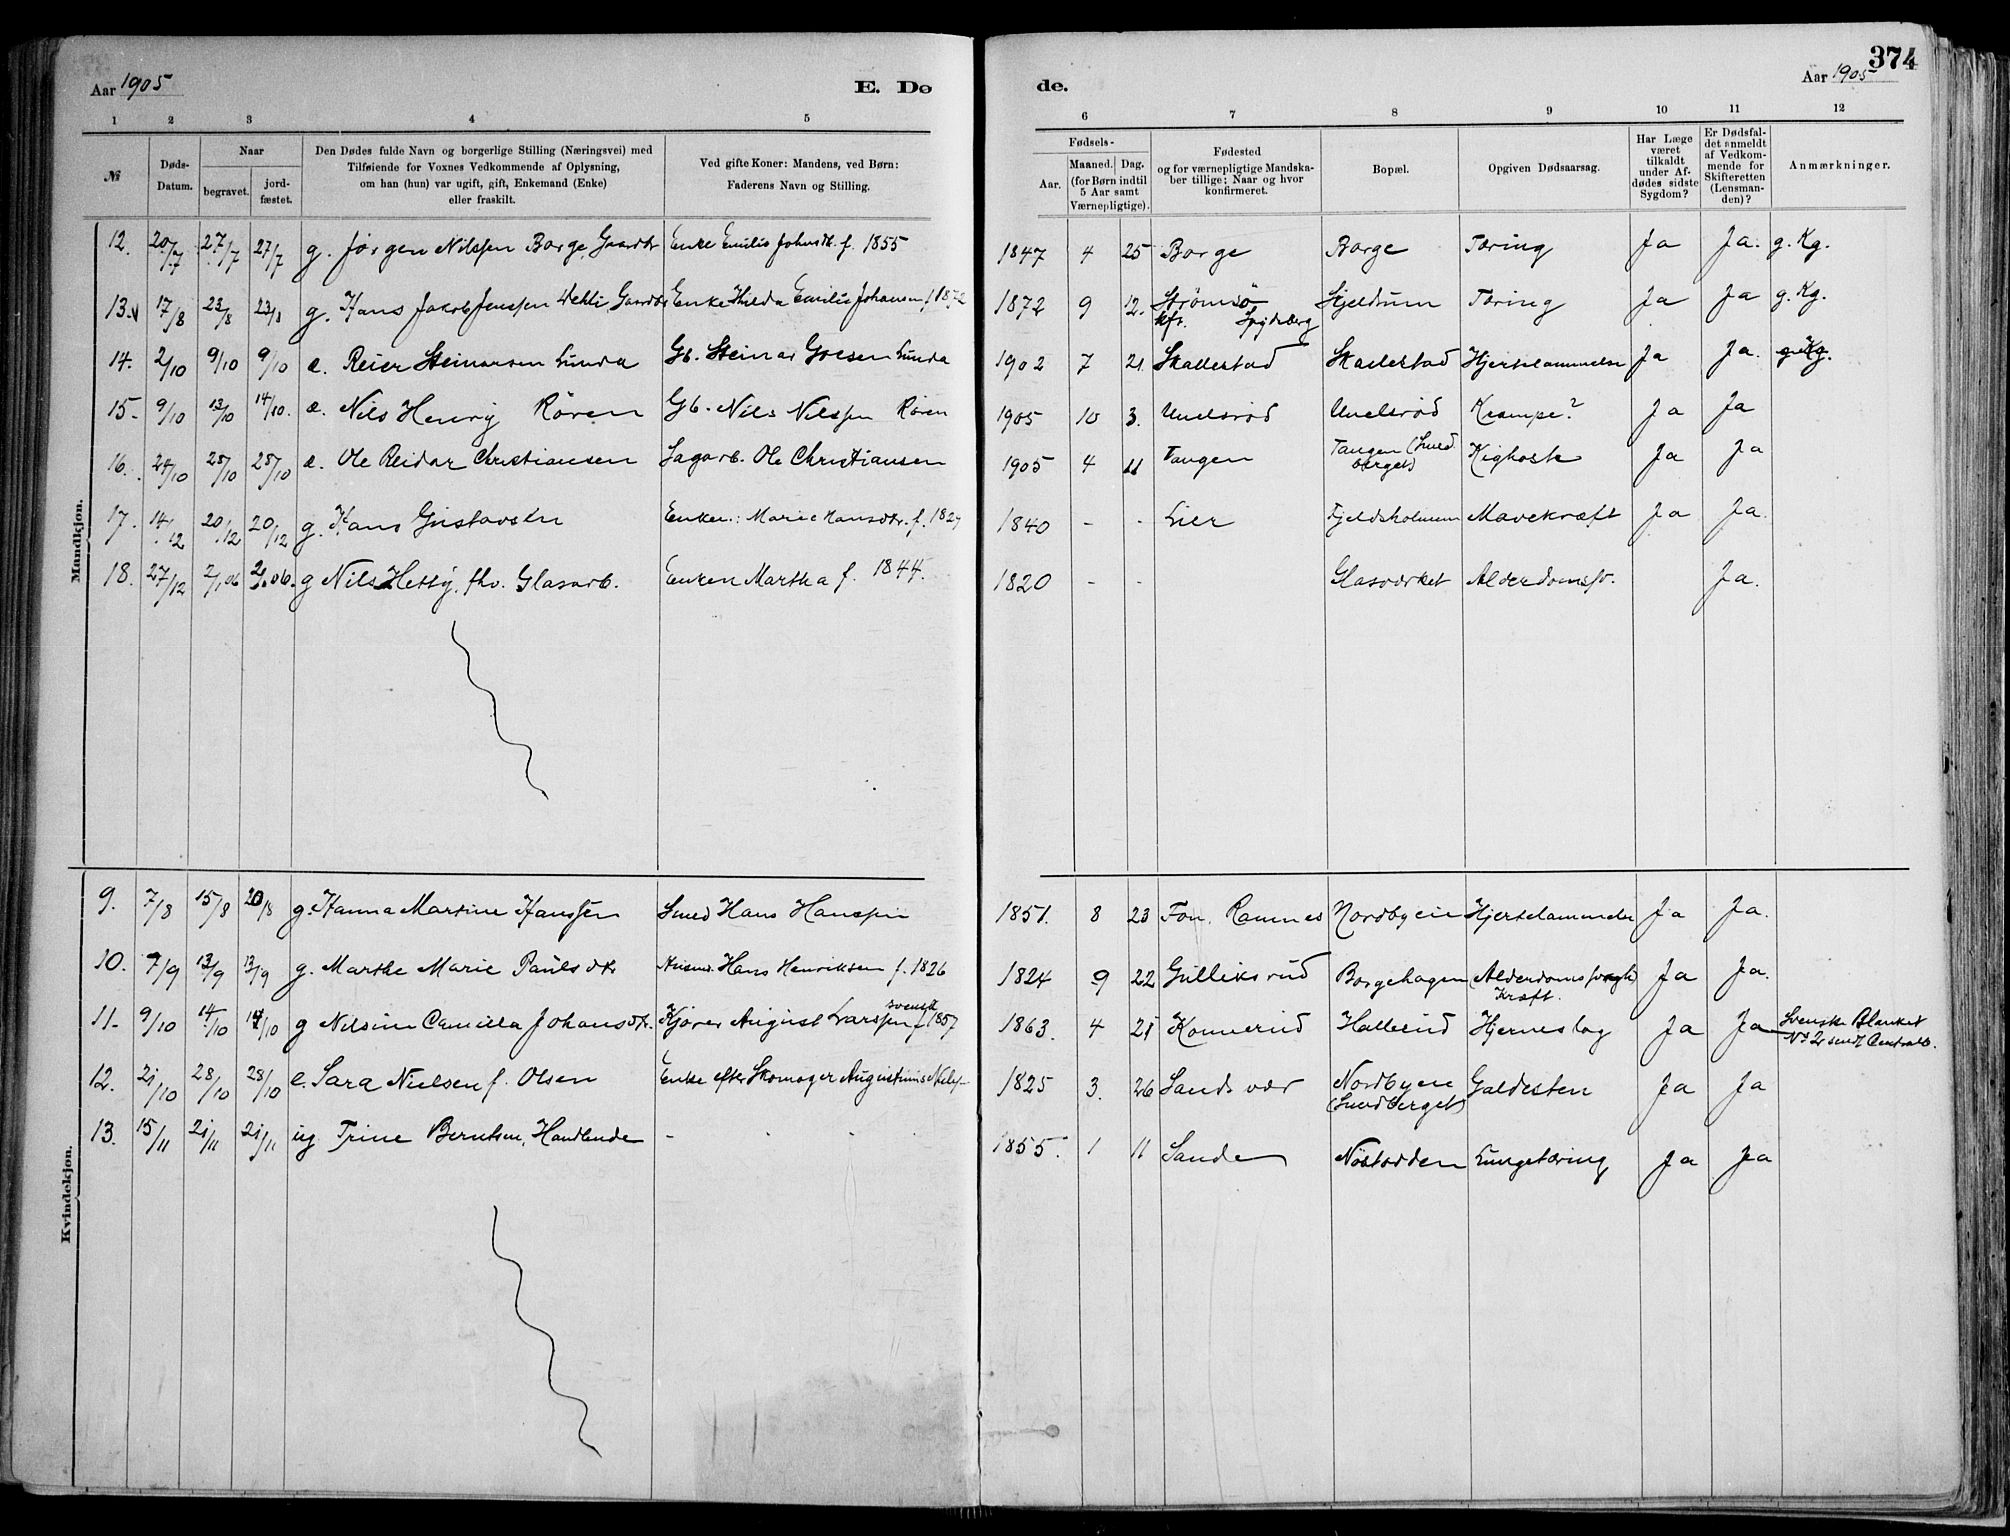 374
Aar 1905
E. Dø
de.
Aar 1905
1 2 3 4 5 6 7 8 9 10 11 12
№
Døds-
Datum.
Naar
begravet.
jord-
fæstet.
Den Dødes fulde Navn og borgerlige Stilling (Næringsvei) med
Tilføiende for Voxnes Vedkommende af Oplysning,
om han (hun) var ugift, gift, Enkemand (Enke)
eller fraskilt.
Ved gifte Koner: Mandens, ved Børn:
Faderens Navn og Stilling.
Fødsels-
Aar.
Maaned. Dag.
(for Børn indtil
5 Aar samt
Værnepligtige).
Fødested
og for værnepligtige Mandska-
ber tillige: Naar og hvor
konfirmeret.
Bopæl.
Opgiven Dødsaarsag.
Har Læge
været
tilkaldt
under Af-
dødes sidste
Sygdom?
Er Dødsfal-
det anmeldt
af Vedkom-
mende for
Skifteretten
(Lensman-
den)?
Anmærkninger.
Mandkjøn.
12. 20/7 27/7 27/7 g. Jørgen Nilssen Borge, Gaardbr Enke Emilie Johnsdt. f. 1855 1847 4 25 Borge Borge Tæring Ja Ja. g. Kg.
13. 17/8 23/8 23/8 g. Hans Jakob Jenssen Dehli Gaardbr Enke Hilda Emilie Johansen f 1872 1872 9 12. Strømsø Skjeldrum Tæring Ja Ja g. Kg.
kfr. Spydeberg
14. 2/10 9/10 9/10 e. Reier Steinarsen Lunda Gb. Steinar Lunda 1902 7 21 Skallestad Skallestad Hjertelammelse Ja Ja. g. Kg.
15. 9/10 13/10 14/10. e. Nils Henry Røren Gb. Nils Nilssen Røren 1905 10 3. Krampe? Ja Ja
16. 24/10 28/10 28/10 e. Ole Reidar Christiansen Sagarb. Ole Christiansen 1905 4 11 Tangen Tangen (Smed Kighoste Ja Ja
berget)
17. 14/12 20/12 20/12 g. Hans Gustavsen Enken: Marie Hansdtr. f. 1827 1840 - - Lier Fjeldsholmen Mavekræft Ja Ja.
18. 27/12 2/1 06 2/1 06. g Nils Hetty, fhv. Glasarb. Enken Martha f. 1844. 1820 - - Glasværket Alderdomssv. Ja.
Kvindekjøn.
9. 7/8 15/8 20/8 g. Hanna Martine Hanssen Smed Hans Hanssen 1851. 8 23 Fon, Ramnes Nordbyen Hjertelammelse Ja Ja.
10. 7/9 13/9 13/9 g. Marthe Marie Paulsdtr Husmd. Hans Henriksen f. 1826 1824 9 22 Gulliksrud Borgehagen Alderdomssvagh Ja Ja.
Kræft.
svensk
11. 9/10 14/10 14/10 g Nilsine Camilla Johansdtr. Kjører August Larssen f 1857 1863. 4 21 Konnerud Hallerud Hjerneslag Ja Ja Svenske Blanket
No 2 sendt Centralb.
12. 21/10 28/10 28/10 e. Sara Nielsen f. Olsen Enke efter Skomager Augustinus Niels- 1825 3. 26 Sandsvær Nordbyen Galdesten Ja Ja
(Smedberget)
13. 15/11 21/11 21/11 ug Trine Berntsen, Handlende - 1855. 1 11 Sande Nøstodden Lungetæring Ja Ja